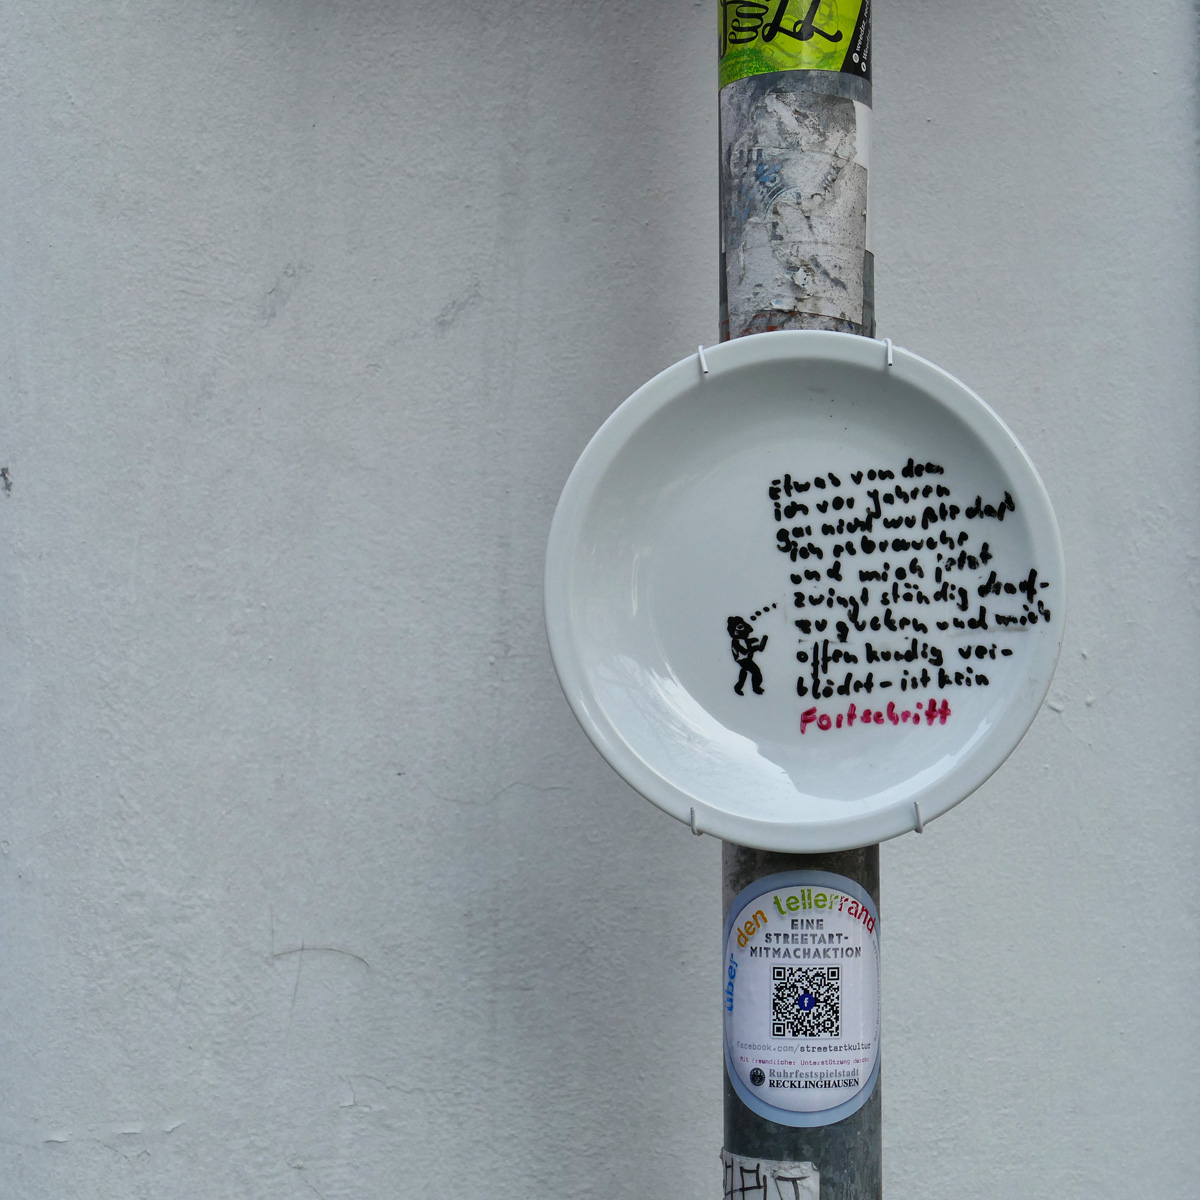 Etwas von dem
ich vor Jahren
gar nicht wußte daß
ich es brauche
und mich jetzt
zwingt ständig drauf-
zugucken und mich
offenkundig ver-
blödet – ist kein
Fortschritt
über den tellerrand
EINE
STREETART-
MITMACHAKTION
f
facebook.com/streetartkultur
Mit freundlicher Unterstützung durch:
Ruhrfestspielstadt
RECKLINGHAUSEN